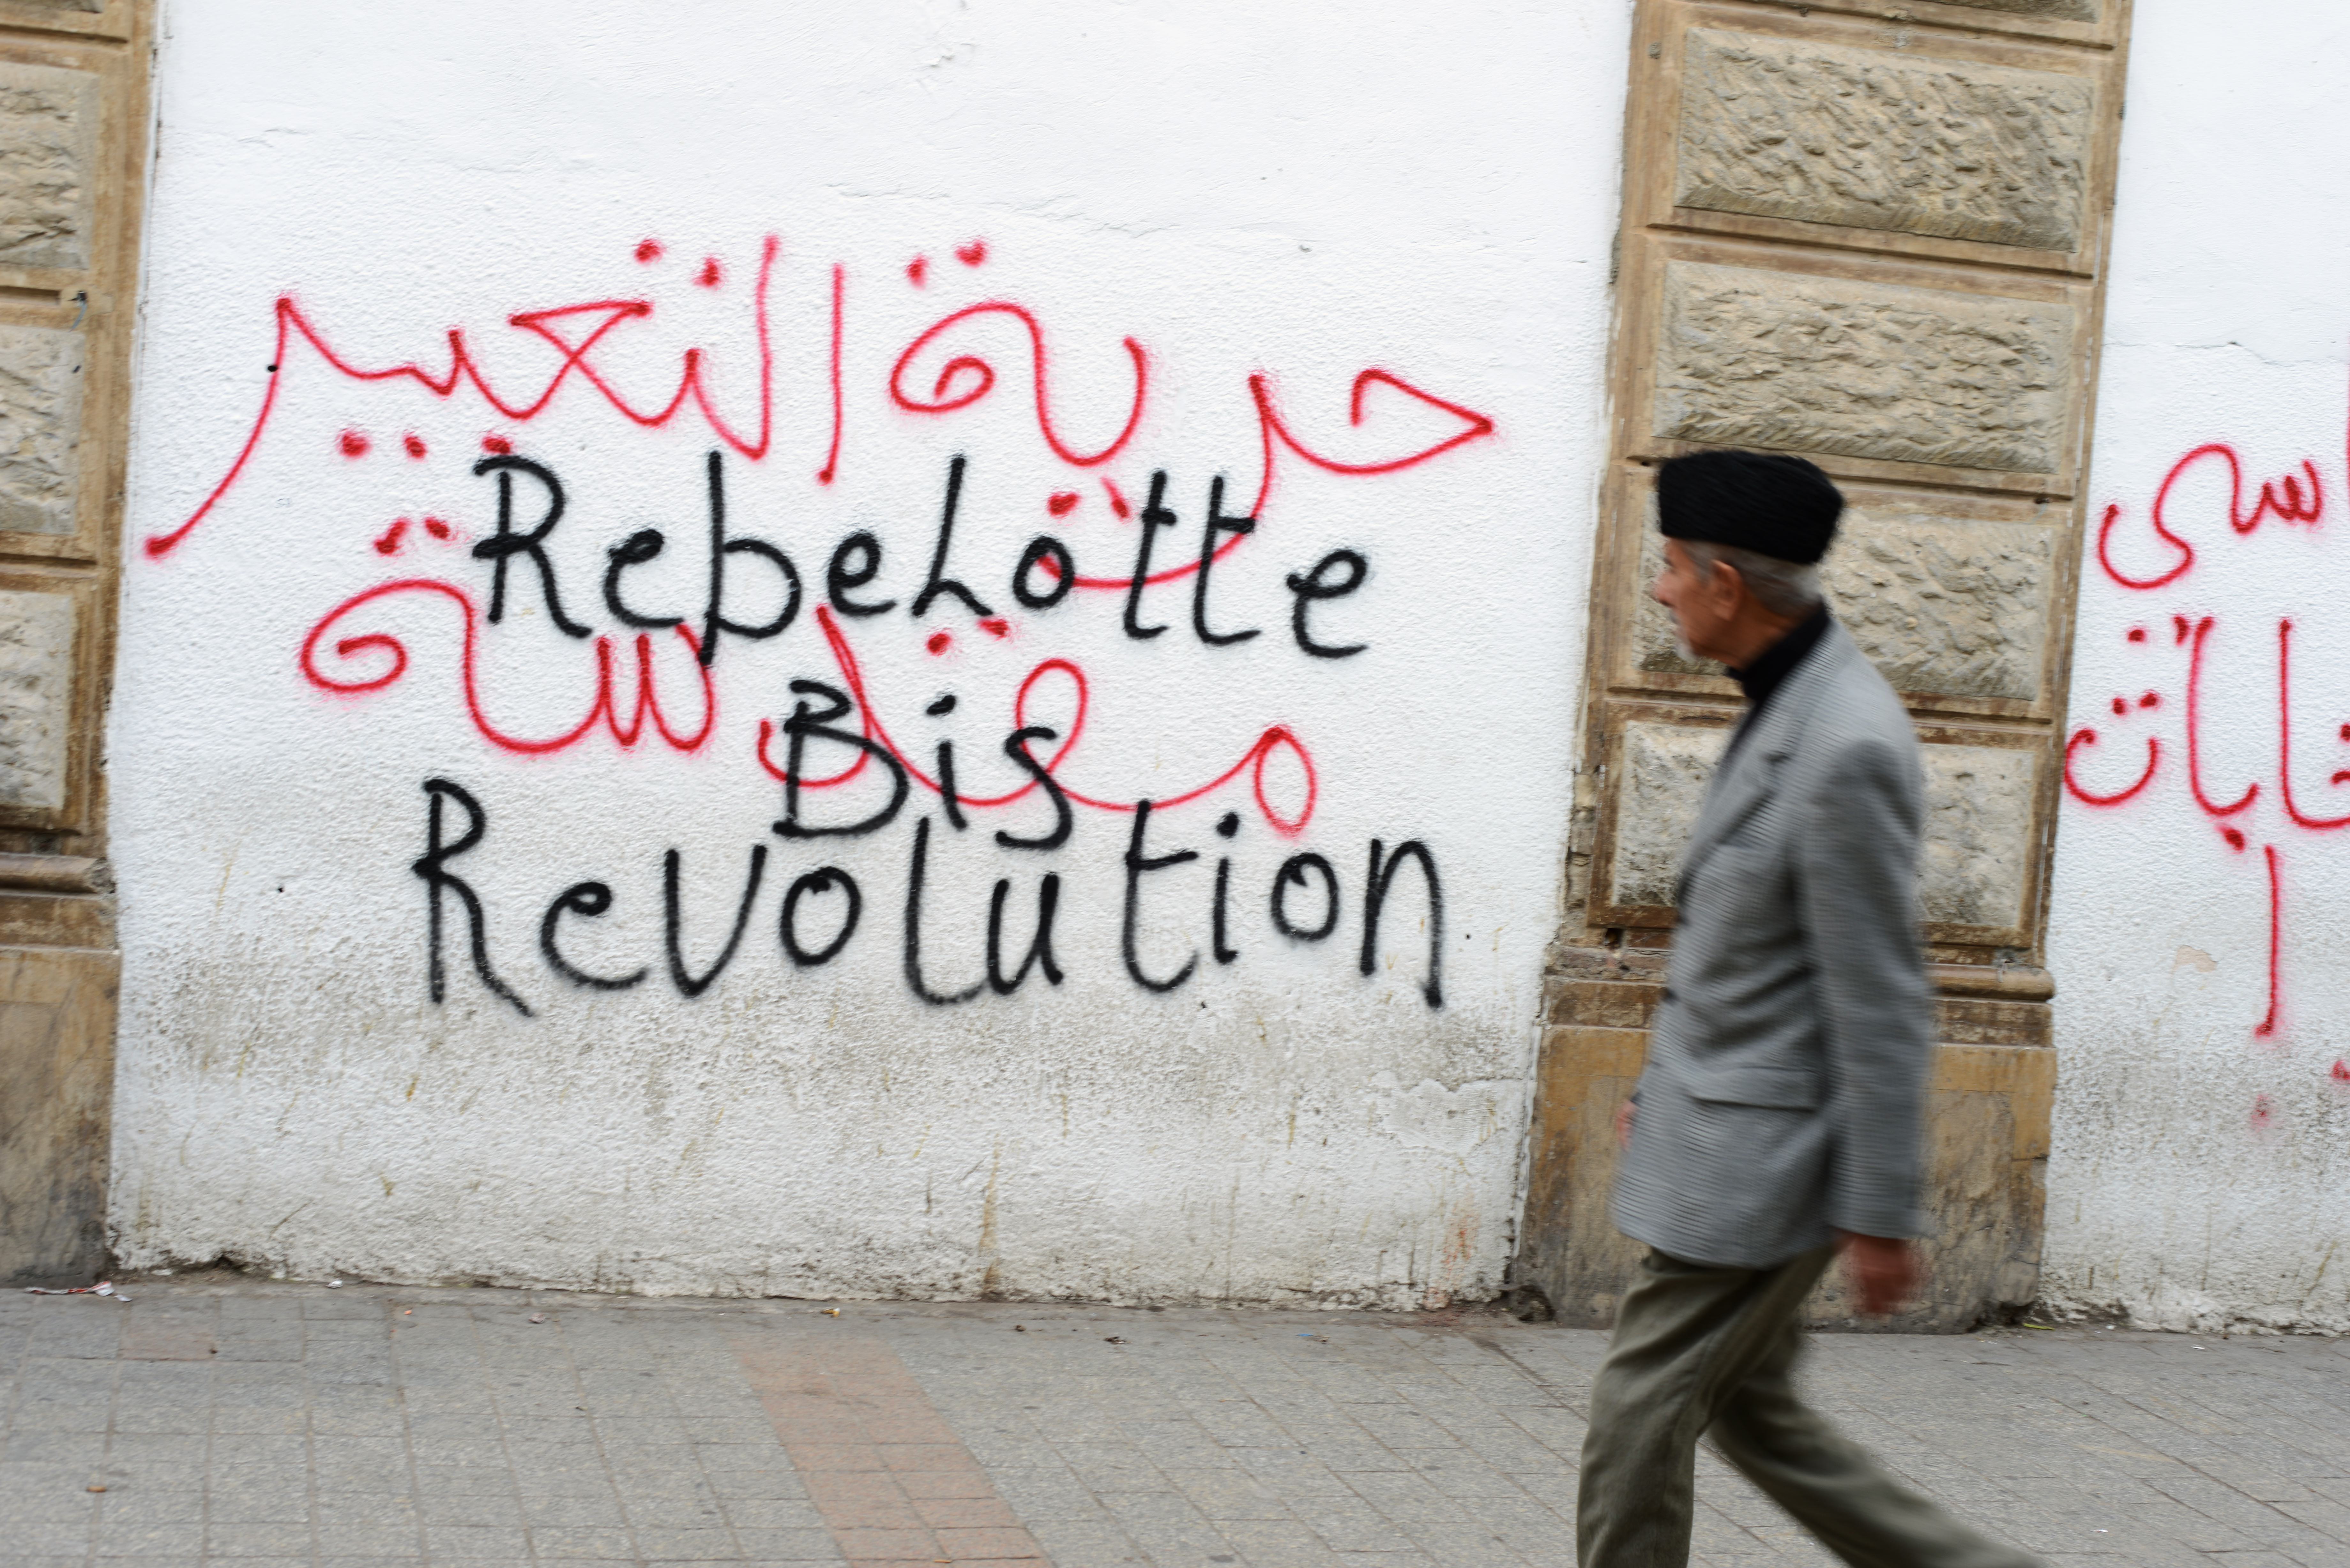 حرية التعبير
مقدسة
Rebelotte
Bis
Revolution